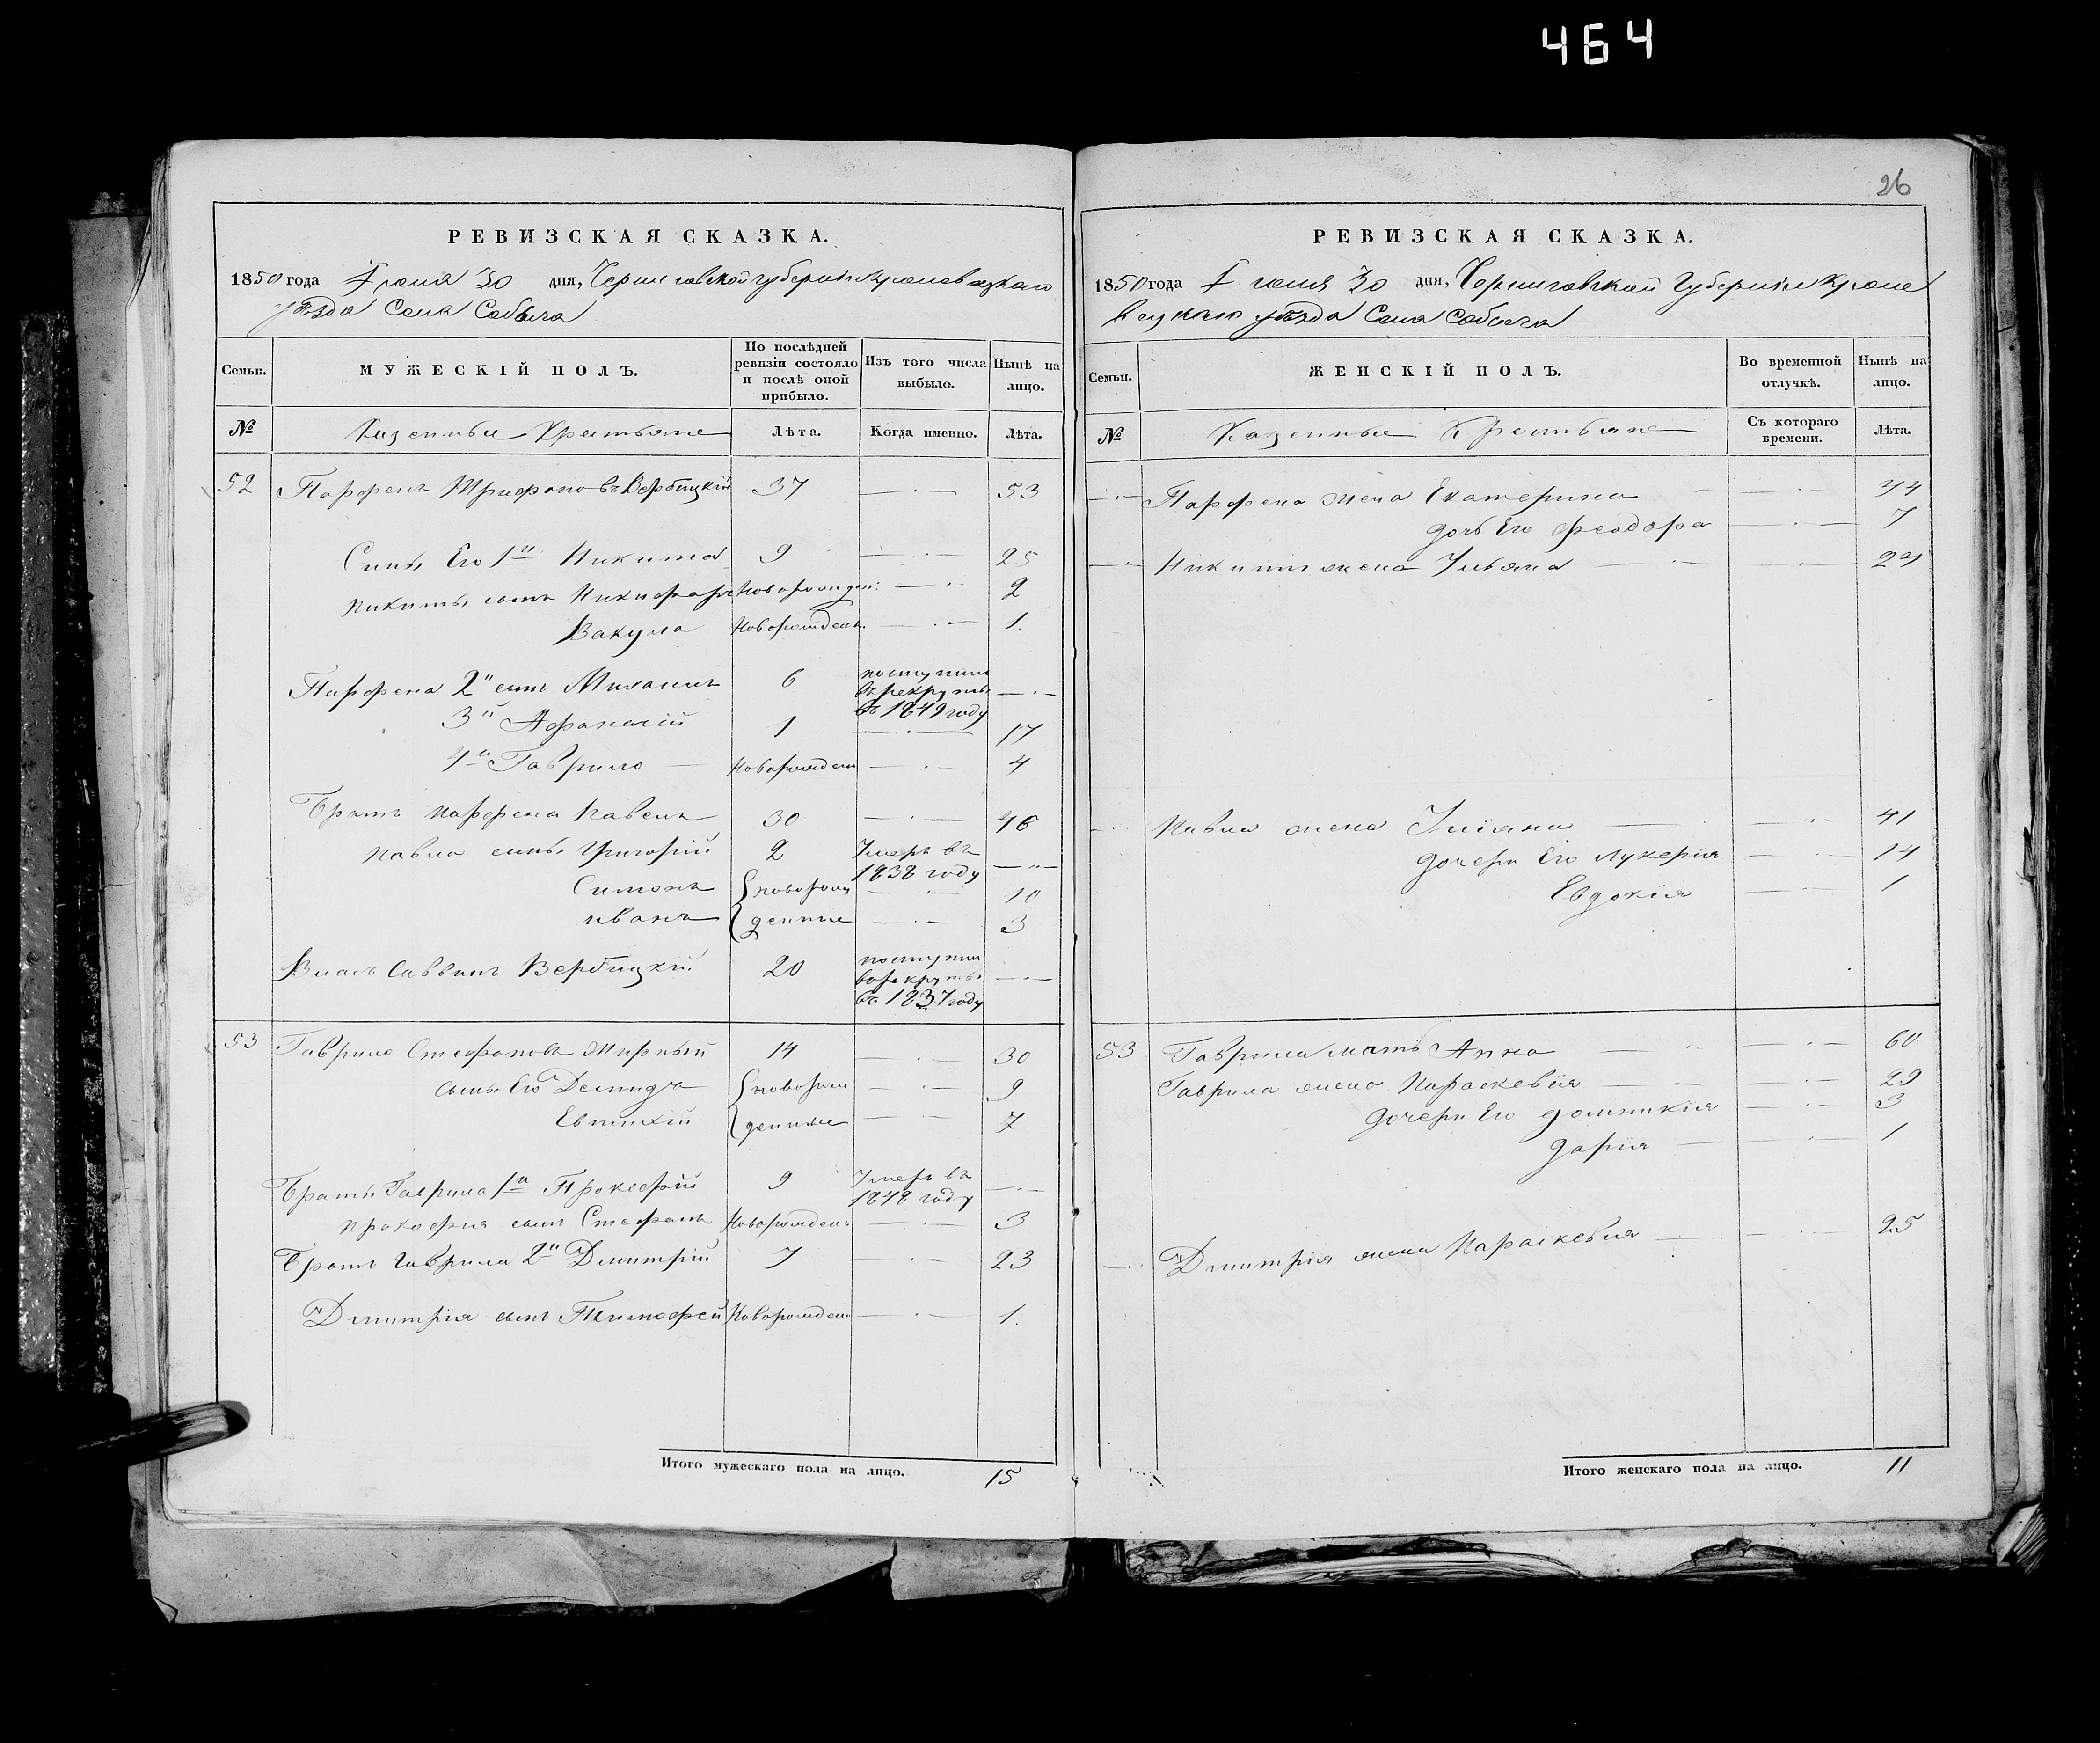 464
РЕВИЗСКАЯ СКАЗКА.
1850 года Іюня 30 дня, Черниговской губерніи Кролевецкаго
уѣзда Села Собыча
Семьи. МУЖЕСКІЙ ПОЛЪ. По послѣдней ревизіи состояло и послѣ оной прибыло. Изъ того числа выбыло. Нынѣ на лицо.
№ Казенные Крестьяне Лѣта. Когда именно. Лѣта.
52 Парфенъ Трифоновъ Вербицкій 37 53
Сынъ Его 1й Никита 9 25
Никиты сынъ Никифоръ Новорожден: 2
Вакула Новорожденъ. 1.
Парфена 2й сынъ Михаилъ 6 поступилъ въ рекруты въ 1849 году
3й Афанасій 1 17
4й Гаврило Новорожден 4
Братъ Парфена Павелъ 30 46
Павла сынъ Григорій 2 Умеръ въ 1838 году
Симонъ новорож 10
иванъ денные 3
Власъ Саввинъ Вербицкій 20 поступил в рекруты въ 1837 году
53 Гаврило Стефановъ Мирный 14 30
сынъ Его Демидъ новорож 9
Евтихій денные 7
Братъ Гаврила 1й Прокофій 9 Умеръ въ 1848 году
Прокофия сынъ Стефанъ Новорожденъ 3
Братъ Гаврила 2й Дмитрій 7 23
Дмитрія сынъ Тимофей Новорожден 1.
Итого мужескаго пола на лицо. 15
26
РЕВИЗСКАЯ СКАЗКА.
1850 года Іюня 30 дня, Черниговской Губерніи Кроле
вецкаго уѣзда Села Собыча
Семьи. ЖЕНСКІЙ ПОЛЪ. Во временной отлучкѣ. Нынѣ на лицо.
№ Казенные Крестьяне Съ котораго времени. Лѣта.
Парфена жена Екатерина 44
дочь Его Феодора 7
Никиты жена Ульяна 24
Павла жена Уліана 41
дочери Его Лукерія 14
Евдокія 1
53 Гаврила мать Анна 60
Гаврила жена Параскевія 29
дочери Его Домникія 3
Дарія 1
Дмитрія жена Параскевия 25
Итого женскаго пола на лицо. 11